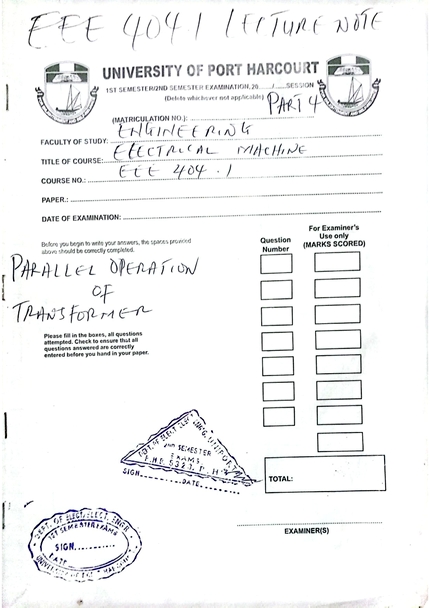 EEE 404.1 LECTURE NOTE
UNIVERSITY OF PORT HARCOURT
1ST SEMESTER/2ND SEMESTER EXAMINATION, 20...../.....SESSION
(Delete whichever not applicable) PART 4
(MATRICULATION NO.):
FACULTY OF STUDY: ENGINEERING
TITLE OF COURSE: ELECTRICAL MACHINE
COURSE NO.: EEE 404.1
PAPER.:
DATE OF EXAMINATION:
Before you begin to write your answers, the spaces provided
above should be correctly completed.
PARALLEL OPERATION
OF
TRANSFORMER
Please fill in the boxes, all questions
attempted. Check to ensure that all
questions answered are correctly
entered before you hand in your paper.
Question
Number
For Examiner's
Use only
(MARKS SCORED)
TOTAL:
EXAMINER(S)
SEMESTER
EXAMS
SIGN
DATE
DEPT. OF ELECT/ELECT. ENGR.
1ST SEMESTER EXAMS
SIGN
DATE